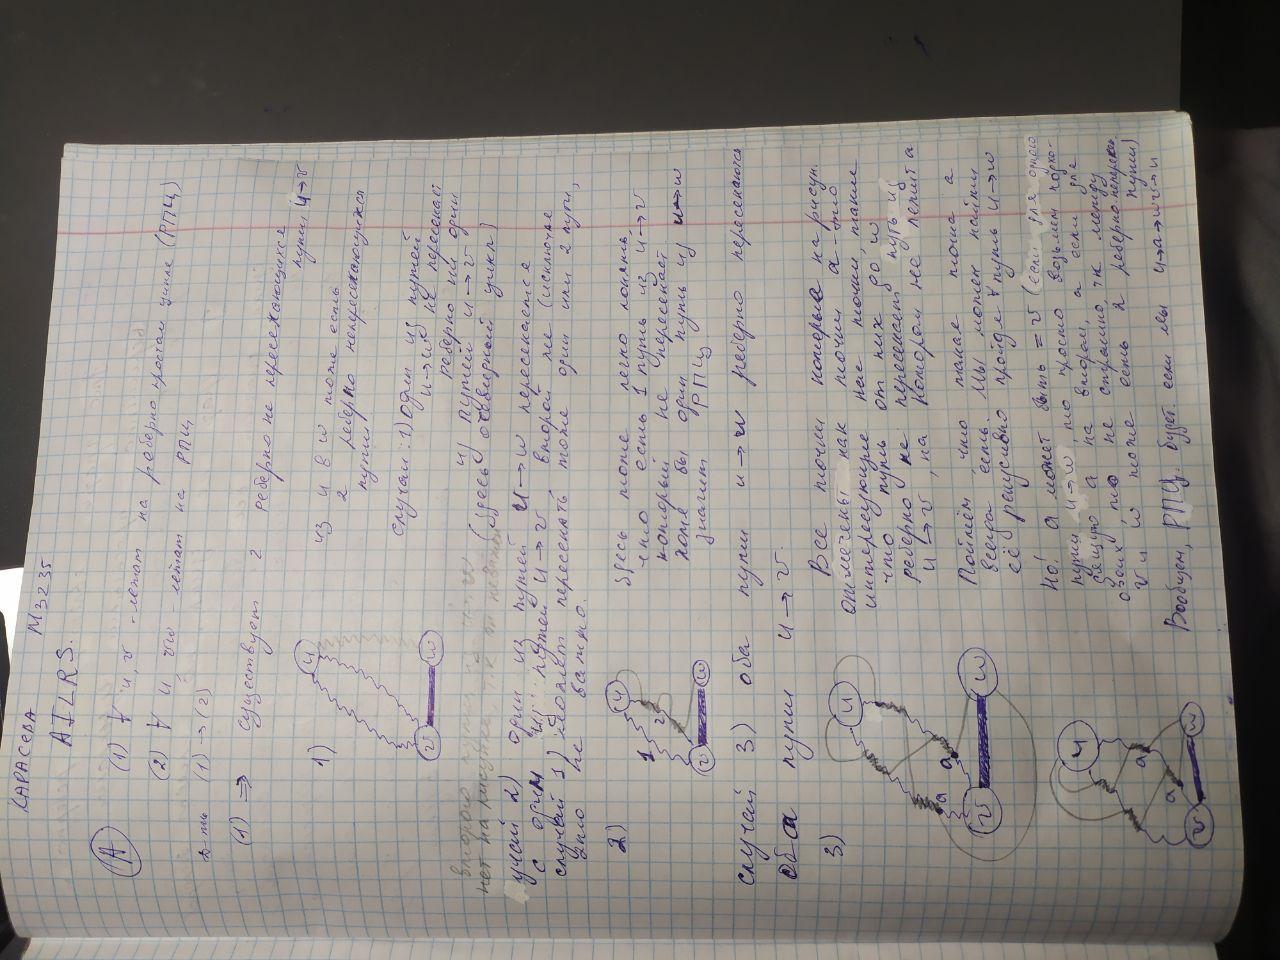 КАРАСЕВА М3235
AILRS.
А (1) ∀ u, v - лежат на реберно простом цикле (РПЦ)
(2) ∀ u, vw - лежат на РПЦ
Д-ть (1) → (2)
(1) ⇒ существует 2 реберно не пересекающихся
пути u→v
1) u v w
из u в w тоже есть
2 реберно непересекающихся
пути
случаи: 1) один из путей
u→w не пересекает
реберно ни один
из путей u→v
(здесь очевидный цикл)
второго пути из u→w
нет на рисунке, т.к он неважен
учай 2) один из путей u→w пересекается
с одним из путей u→v, второй же (исключая
случай 1) может пересекать тоже один или 2 пути,
это не важно.
2) u 1 2 v w
Здесь тоже легко понять,
что есть 1 путь из u→v
который не пересекает
хотя бы один путь из u→w
значит РПЦ
случай 3) оба пути u→w реберно пересекаются
оба пути u→v.
3) u a a v w
Все точки которые на рисун.
отмечены как точки a - это
интересующие нас точки, такие
что путь от них до w
реберно не пересекает путь из
u→v, на котором не лежит a
Поймём, что такая точка a
всегда есть. Мы можем найти
её рекурсивно пройдя ∀ путь u→w
Но! a может быть = v (если для одного
пути u→w, то просто возьмем подхо-
дящую a на втором, а если для
обоих, то не страшно, тк между
v и w тоже есть 2 реберно-непересек.
пути)
u a a v w
Вообщем, РПЦ. будет если мы u→a→w v→u